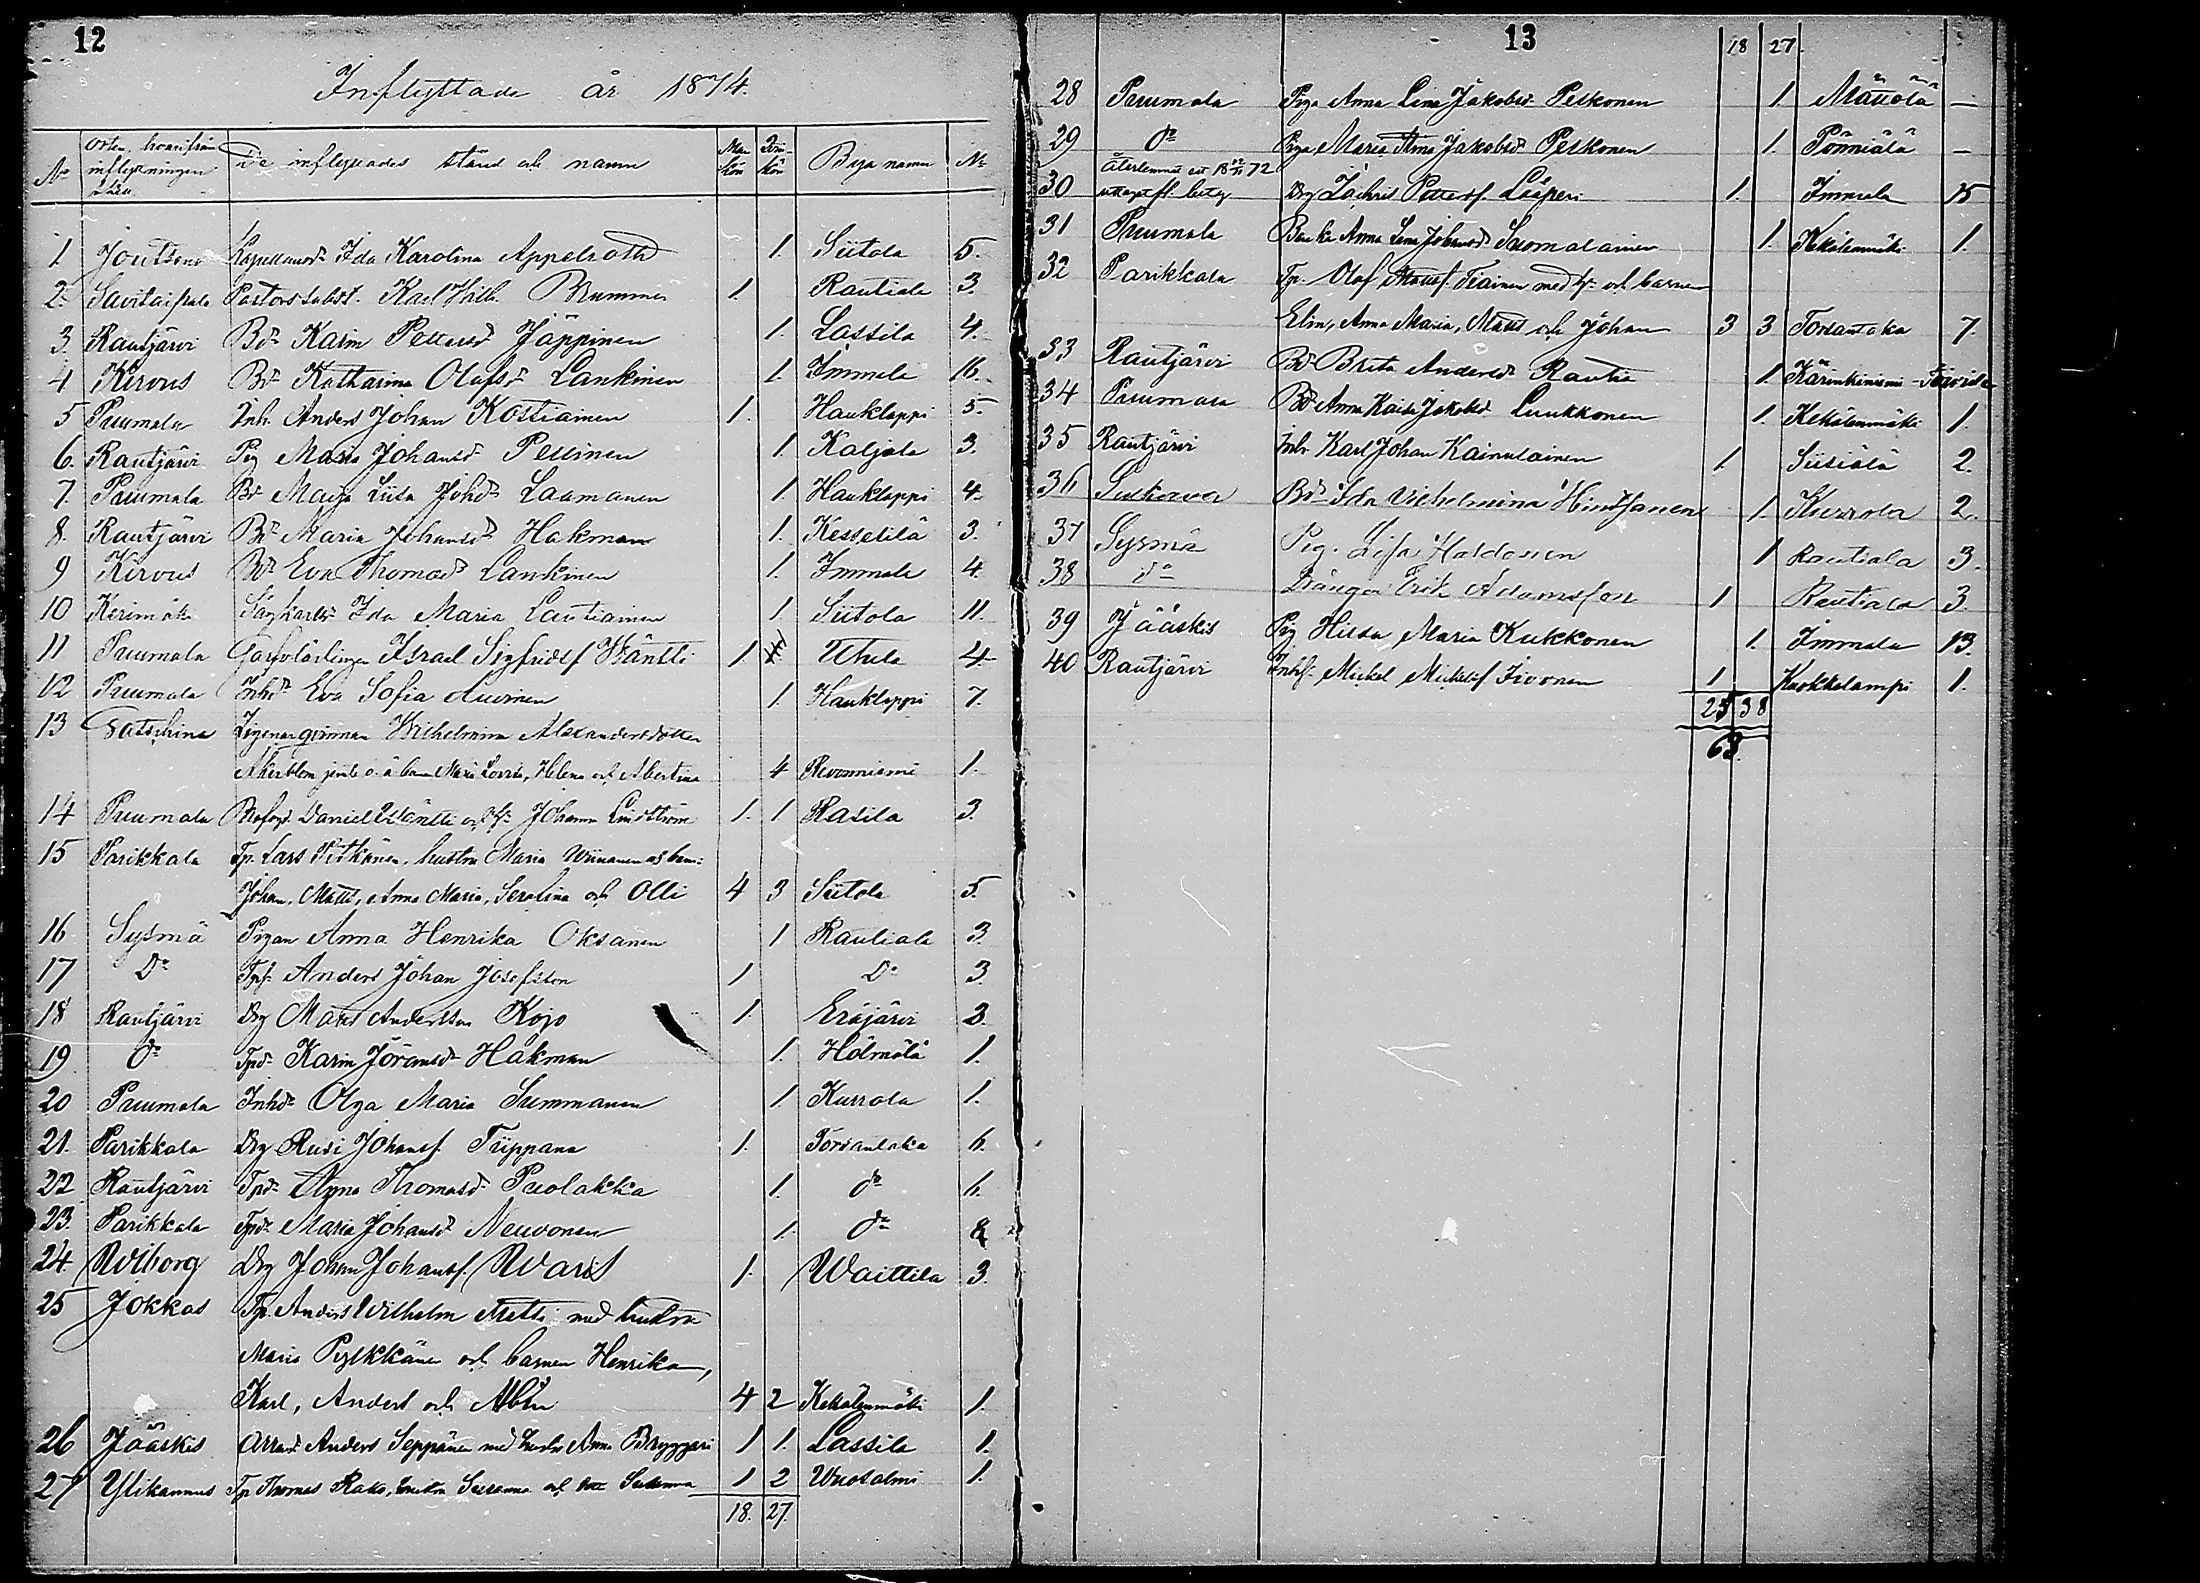 12
Inflyttade år 1874.
No Orten, hvarifrån inflyttningen skett De inflyttades stånd och namn Man kön Qvin kön Byga namn No
1 Joutseno Kapellansd:r Ida Karolina Appelroth 1. Siitola 5.
2. Savitaipale Pastors subst. Karl Wilh. Brummer 1. Rautiala 3.
3. Rautjärvi Bd:r Karin Pettersd:r Jäppinen 1. Lassila 4.
4 Kirvus Bd:r Katharina Olofsd:r Lankinen 1. Immala 16.
5 Puumala Inh. Anders Johan Kostiainen 1. Hauklappi 5.
6. Rautjärvi Pig Maria Johansd:r Pessinen 1 Kaljala 3.
7. Puumala Bd:r Maija Liisa Johd:r Laamanen 1 Hauklappi 4.
8. Rautjärvi Bd:r Maria Johansd:r Hakman 1. Kesselilä 3.
9 Kirvus Bd:r Eva Thomasd:r Lankinen 1. Immala 4.
10 Kerimäki Ida Maria Lautiainen 1 Siitola 11.
11 Puumala Garfvolärlingen Israel Sigfridsf Wäntti 1. Uhula 4.
12 Puumala Inhd:r Eva Sofia Auvinen 1. Hauklappi 7.
13 Gatschina Zigenarqvinnan Wilhelmina Alexandersdotter
Åkerblom jemte o. ä. barn Maria Lovisa, Helena och Albertina 4 Revonniemi 1.
14 Puumala Daniel Wäntti och Johanna Lindström 1. 1 Rasila 3.
15 Parikkala Tp. Lars Pitkänen, hustru Maria Wiinanen och barn:
Johan, Matts, Anna Maria, Serafina och Olli 4 3 Siitola 5.
16 Sysmä Pigan Anna Henrika Oksanen 1 Rautiala 3.
17 D:o Tpf. Anders Johan Josefsson 1 D:o 3.
18 Rautjärvi Drg Matts Andersson Kojo 1. Eräjärvi 3.
19 d:o Tpd:r Karin Jöransd:r Hakman 1. Hölmälä 1.
20 Puumala Inhd:r Olga Maria Summanen 1. Kurrola 1.
21. Parikkala Drg Rusi Johansf. Tiippana 1. Torsanlaka 6.
22 Rautjärvi Tpd:r Anna Thomasd:r Puolakka 1. d:o 6.
23. Parikkala Tpd:r Maria Johansd:r Neuvonen 1. d:o 8
24. Wiborg Drg Johan Johansf. Waris 1. Waittila 3.
25 Jokkas Tp. Anders Wilhelm Matti med hustru
Maria Pylkkänen och barnen Henrika,
Karl, Anders och Albin 4 2 Kekälenmäki 1.
26 Jääskis Anders Seppänen med hustru Anna Bryggari 1 1. Lassila 1.
27 Ylikannus Tp Thomas Rako, hustru Susanna och Susanna 1 2 Wuosalmi 1.
18. 27.
13
18 27.
28 Puumala Piga Anna Lena Jakobsd:r Pelkonen 1. Mättölä —
29 d:o Piga Maria Stina Jakobsd:r Pelkonen 1. Pönniälä —
30 Drg Zachris Pettersf. Lääperi 1. Immala 15
31 Puumala Anna Lena Johansd:r Suomalainen 1. Kekälenmäki 1.
32 Parikkala Tp. Olof Mattsf. Tiainen med h:r och barnen
Elin, Anna Maria, Matts och Johan 3 3 Torsanlaka 7.
33 Rautjärvi Bd:r Brita Andersd:r Rautia 1. Kärinkiniemi
34 Puumala Bd:r Anna Kaisa Jakobsd:r Luukkonen 1. Kekälenmäki 1.
35 Rautjärvi Inh. Karl Johan Kainulainen 1. Siisiälä 2.
36 Sulkava Bd:r Ida Vilhelmina Hindsanen 1. Kurrola 2.
37 Sysmä Pig. Lisa Haldonen 1 Rautiala 3.
38 d:o Drängen Erik Adamsson 1 Rautiala 3.
39 Jääskis Pig Hilda Maria Kukkonen 1. Immala 13.
40 Rautjärvi Inhsf. Mickel Mickelsf Iivonen 1 Kuokkalampi 1.
25 38
63.